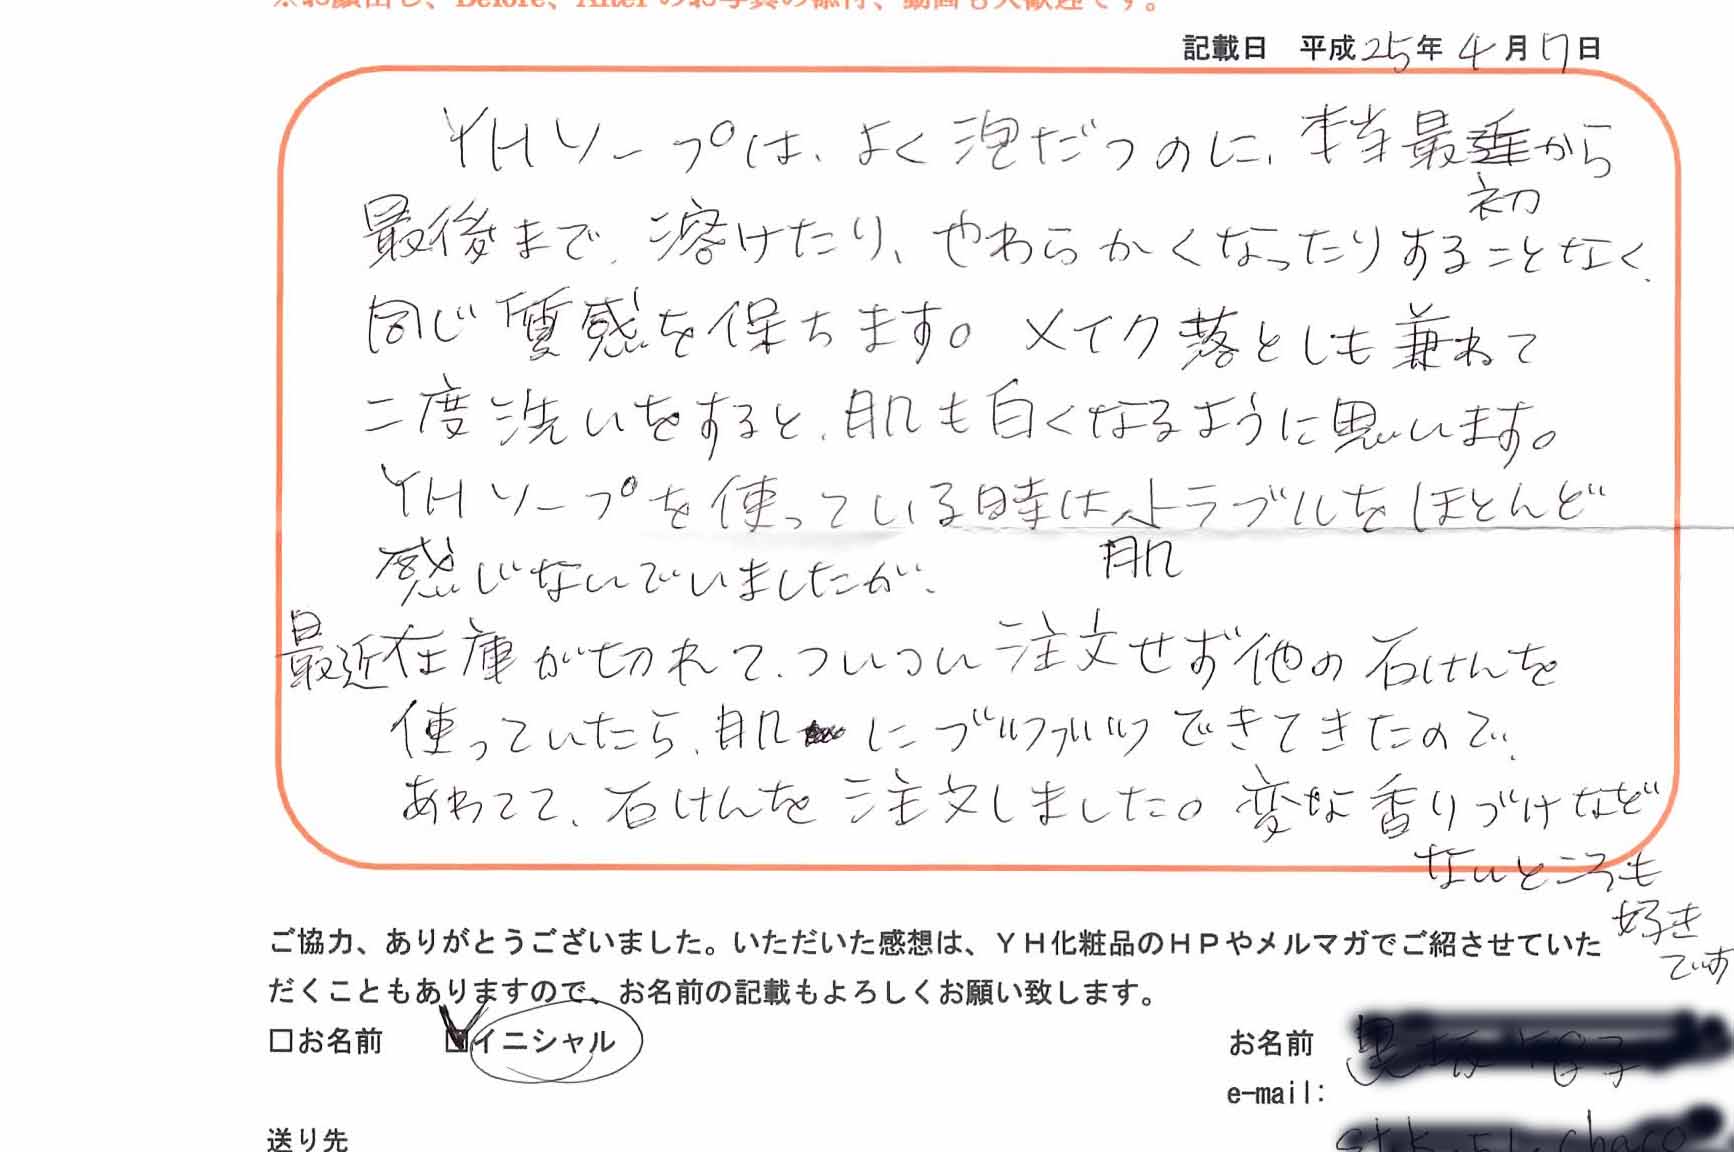 ※お顔出し、Before、Afterのお写真の添付、動画も大歓迎です。
記載日 平成25年4月17日
YHソープは、よく泡だつのに、本当最初から
最後まで、溶けたり、やわらかくなったりすることなく、
同じ質感を保ちます。メイク落としも兼ねて
二度洗いをすると、肌も白くなるように思います。
YHソープを使っている時は肌トラブルをほとんど
感じないでいましたが、
最近在庫が切れて、ついつい注文せず他の石けんを
使っていたら、肌にブツブツできてきたので、
あわてて、石けんを注文しました。変な香りづけなど
ないところも
好き
です
ご協力、ありがとうございました。いただいた感想は、YH化粧品のHPやメルマガでご紹させていた
だくこともありますので、お名前の記載もよろしくお願い致します。
□お名前 ☑イニシャル
お名前
e-mail:
送り先